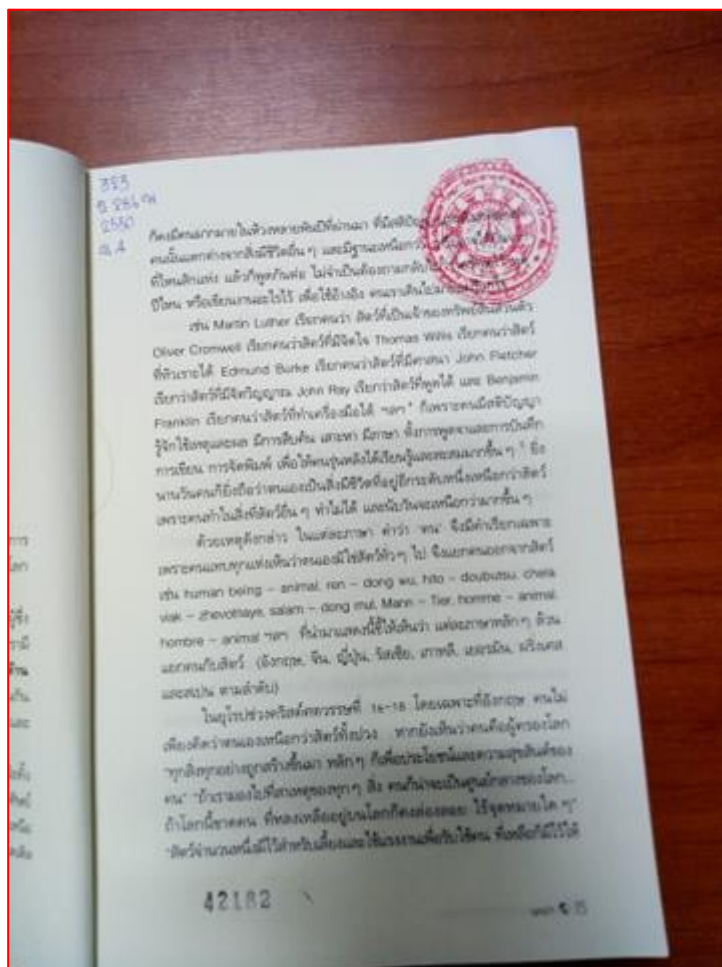 383
ก็คงมีคนมากมายในห้วงหลายพันปีที่ผ่านมา ที่มีสติปัญญา
คนนั้นแตกต่างจากสิ่งมีชีวิตอื่น ๆ และมีฐานะเหนือกว่า
ที่ไหนสักแห่ง แล้วก็พูดกันต่อ ไม่จำเป็นต้องถามกลับ
ปีไหน หรือเขียนงานอะไรไว้ เพื่อใช้อ้างอิง คนเราเดิน
เช่น Martin Luther เรียกคนว่า สัตว์ที่เป็นเจ้าของทรัพย์สินส่วนตัว
Oliver Cromwell เรียกคนว่าสัตว์ที่มีจิตใจ Thomas Willis เรียกคนว่าสัตว์
ที่หัวเราะได้ Edmund Burke เรียกคนว่าสัตว์ที่มีศาสนา John Fletcher
เรียกว่าสัตว์ที่มีจิตวิญญาณ John Ray เรียกว่าสัตว์ที่พูดได้ และ Benjamin
Franklin เรียกคนว่าสัตว์ที่ทำเครื่องมือได้ ฯลฯ ก็เพราะคนมีสติปัญญา
รู้จักใช้เหตุและผล มีการสืบค้น เสาะหา มีภาษา ทั้งการพูดจาและการบันทึก
การเขียน การจัดพิมพ์ เพื่อให้คนรุ่นหลังได้เรียนรู้และสะสมมากขึ้น ๆ ยิ่ง
นานวันคนก็ยิ่งถือว่าตนเองเป็นสิ่งมีชีวิตที่อยู่อีกระดับหนึ่งเหนือกว่าสัตว์
เพราะคนทำในสิ่งที่สัตว์อื่น ๆ ทำไม่ได้ และนับวันจะเหนือกว่ามากขึ้น ๆ
ด้วยเหตุดังกล่าว ในแต่ละภาษา คำว่า 'คน' จึงมีคำเรียกเฉพาะ
เพราะคนแทบทุกแห่งเห็นว่าตนเองมิใช่สัตว์ทั่วๆ ไป จึงแยกตนออกจากสัตว์
เช่น human being – animal, ren – dong wu, hito – doubutsu, chela
viak – zhevotnaye, salam – dong mul, Mann – Tier, homme – animal,
hombre – animal ฯลฯ ที่นำมาแสดงนี้ชี้ให้เห็นว่า แต่ละภาษาหลักๆ ล้วน
แยกคนกับสัตว์ (อังกฤษ, จีน, ญี่ปุ่น, รัสเซีย, เกาหลี, เยอรมัน, ฝรั่งเศส
และสเปน ตามลำดับ)
ในยุโรปช่วงคริสต์ศตวรรษที่ 16-18 โดยเฉพาะที่อังกฤษ คนไม่
เพียงคิดว่าตนเองเหนือกว่าสัตว์ทั้งปวง หากยังเห็นว่าตนคือผู้ครองโลก
"ทุกสิ่งทุกอย่างถูกสร้างขึ้นมา หลักๆ ก็เพื่อประโยชน์และความสุขสันต์ของ
คน" "ถ้าเรามองไปที่สาเหตุของทุกๆ สิ่ง คนก็น่าจะเป็นศูนย์กลางของโลก...
ถ้าโลกนี้ขาดคน ที่หลงเหลืออยู่บนโลกก็คงล่องลอย ไร้จุดหมายใด ๆ"
"สัตว์จำนวนหนึ่งมีไว้สำหรับเลี้ยงและใช้แรงงานเพื่อรับใช้คน ที่เหลือก็มีไว้ให้
42182